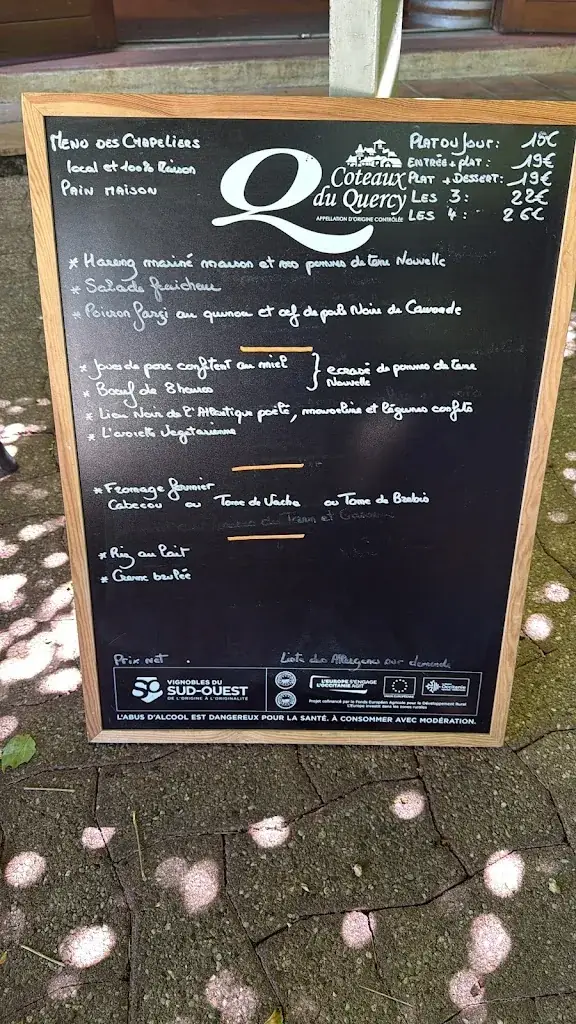 MENU DES CHAPELIERS
local et 100% Maison
PAIN MAISON
Q Coteaux du Quercy
APPELLATION D'ORIGINE CONTRÔLÉE
PLAT DU JOUR : 15€
ENTRÉE + PLAT : 19€
PLAT + DESSERT : 19€
LES 3 : 22€
LES 4 : 26€
* Hareng mariné maison et nos pommes de terre Nouvelle
* Salade fraicheur
* Poivron farçi au quinoa et œf de poule Noire de Caussade
* Joues de porc confitent au miel } ecrasé de pommes de terre
Nouvelle
* Bœuf de 8 heures
* Lieu Noir de l'Atlantique poêlé, mousseline et légumes confits
* L'assiette Végétarienne
* Fromage fermier
Cabecou ou Tome de Vache ou Tome de Brebis
* Riz au lait
* Creme brulée
Prix net .
Liste des Allergenes sur demande
SO VIGNOBLES DU
SUD-OUEST
DE L'ORIGINE À L'ORIGINALITÉ
L'EUROPE S'ENGAGE
L'OCCITANIE AGIT
Projet cofinancé par le Fonds Européen Agricole pour le Développement Rural
L'Europe investit dans les zones rurales
L'ABUS D'ALCOOL EST DANGEREUX POUR LA SANTÉ. À CONSOMMER AVEC MODÉRATION.